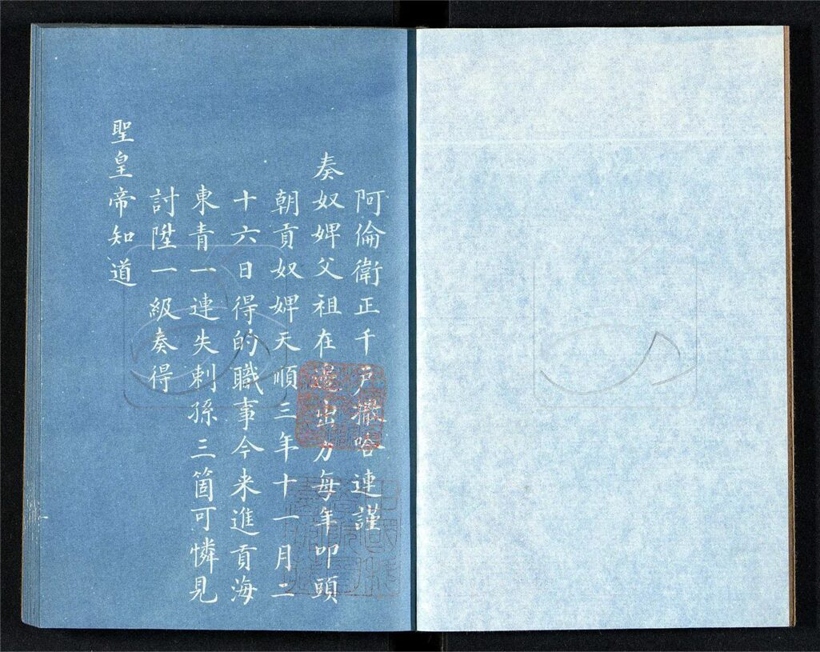 阿倫衛正千戶撒哈連謹
奏奴婢父祖在邊出力每年叩頭
朝貢奴婢天順三年十一月二
十六日得的職事今来進貢海
東青一連失剌孫三箇可憐見
討陞一級奏得
聖皇帝知道